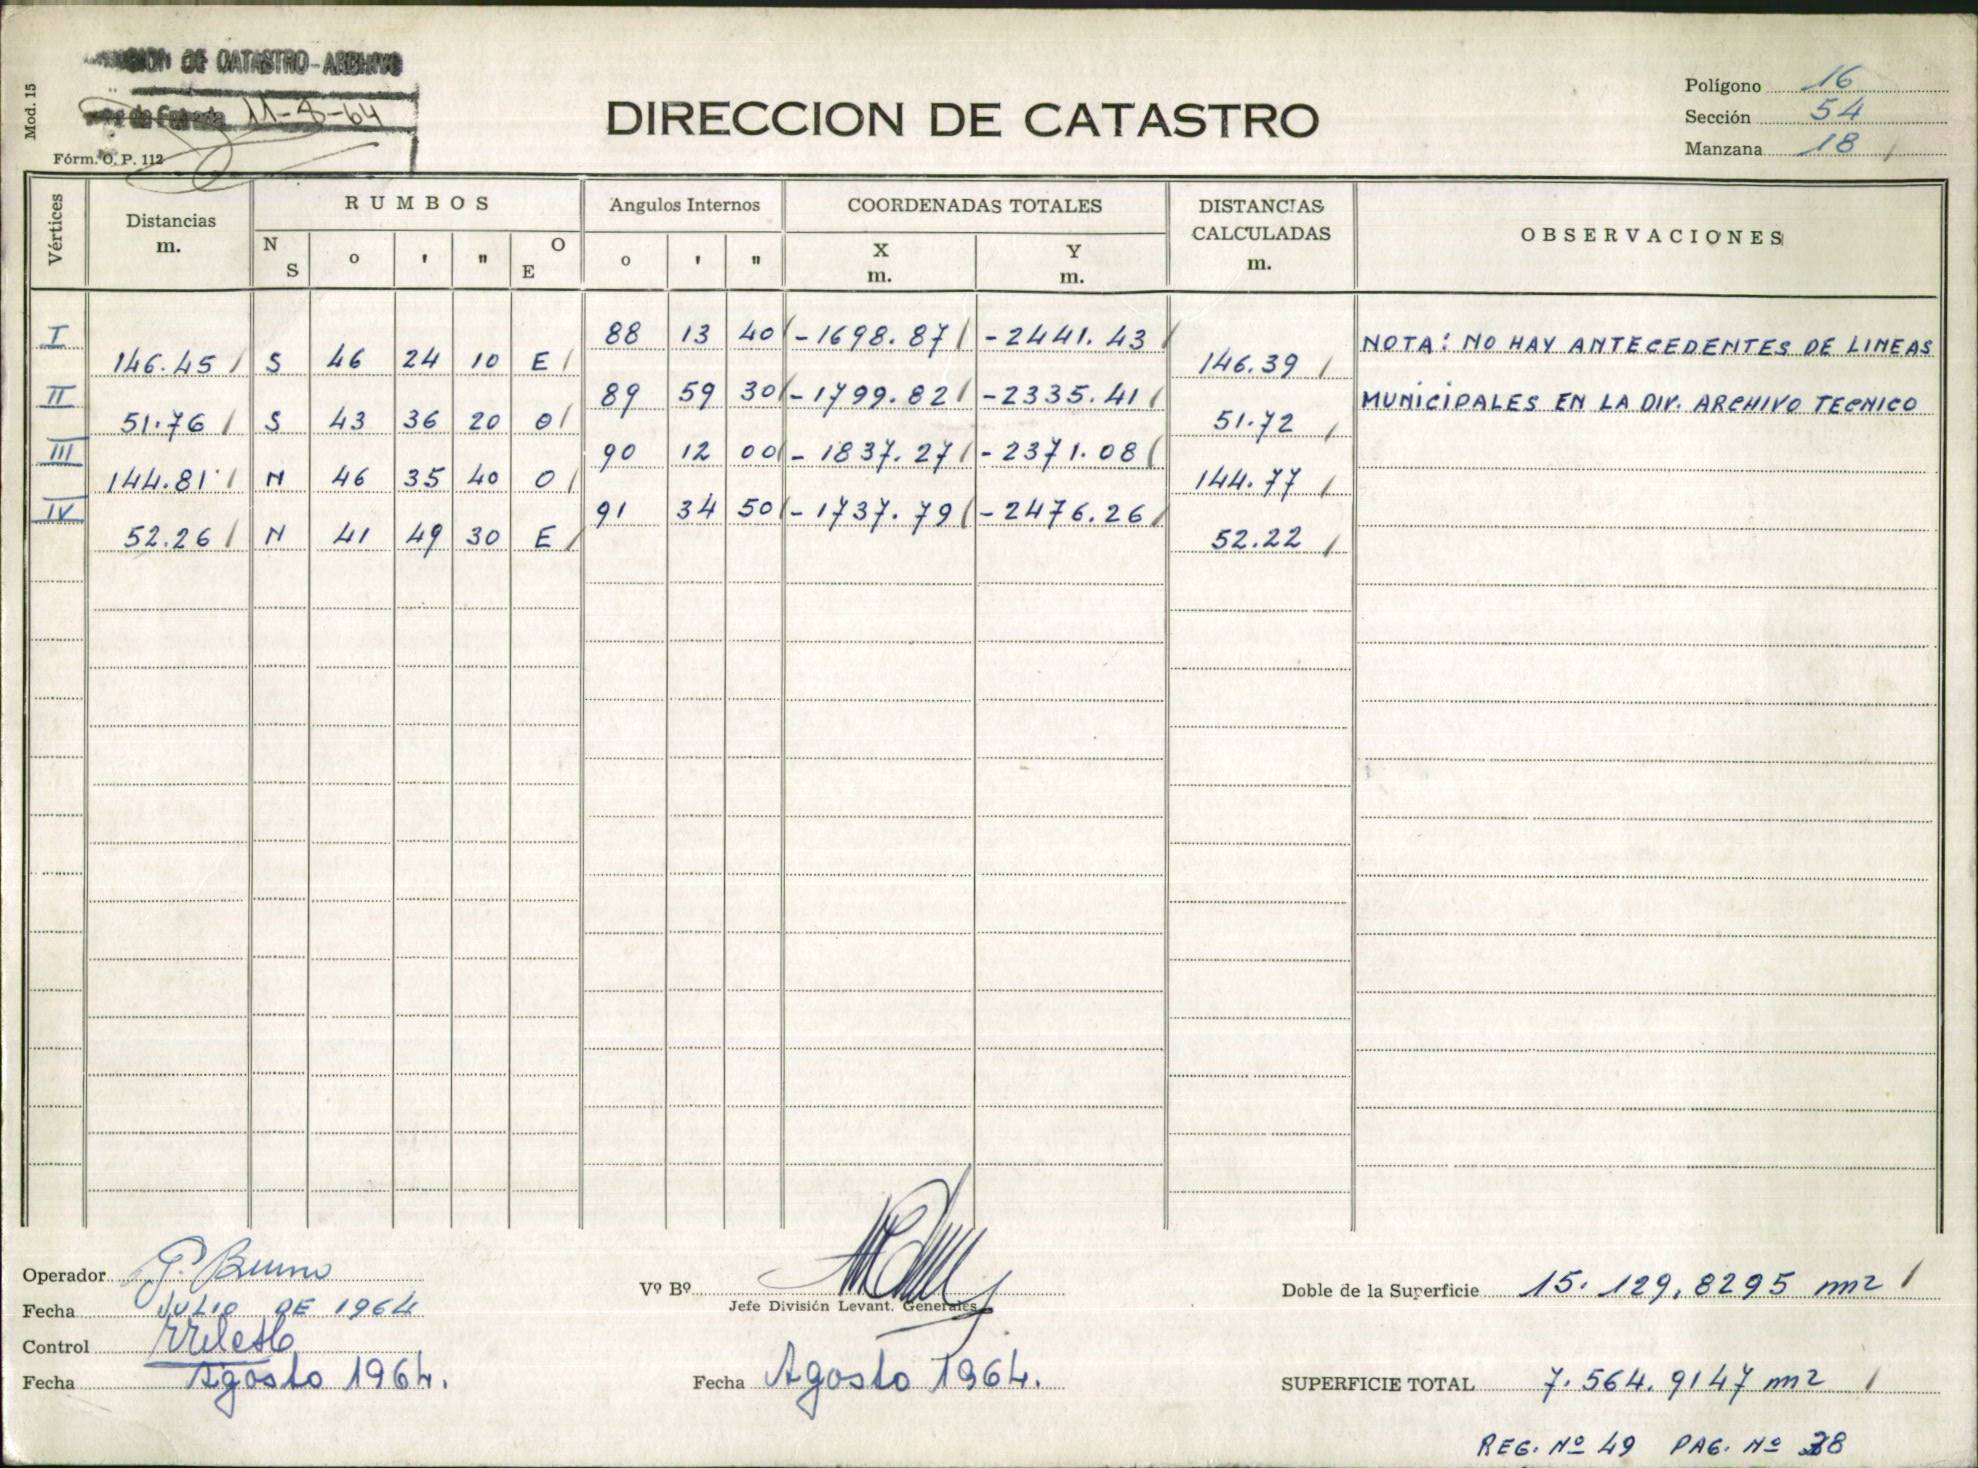 DE CATASTRO-ARCHIVO
Mod. 15
de Entrada 11-8-64
Fórm. O. P. 112
DIRECCION DE CATASTRO
Polígono 16
Sección 54
Manzana 18
Vértices Distancias m. RUMBOS N S o ' " O E Angulos Internos o ' " COORDENADAS TOTALES X m. Y m. DISTANCIAS CALCULADAS m. OBSERVACIONES
I 88 13 40 -1698.87 -2441.43
146.45 S 46 24 10 E 146.39
NOTA: NO HAY ANTECEDENTES DE LINEAS
II 89 59 30 -1799.82 -2335.41
51.76 S 43 36 20 O 51.72
MUNICIPALES EN LA DIV. ARCHIVO TECNICO
III 90 12 00 -1837.27 -2371.08
144.81 N 46 35 40 O 144.77
IV 91 34 50 -1737.79 -2476.26
52.26 N 41 49 30 E 52.22
Operador Bruno
Fecha JULIO DE 1964
Control
Fecha Agosto 1964.
Vº Bº
Jefe División Levant. Generales
Fecha Agosto 1964.
Doble de la Superficie 15.129,8295 m2
SUPERFICIE TOTAL 7.564.9147 m2
REG. Nº 49 PAG. Nº